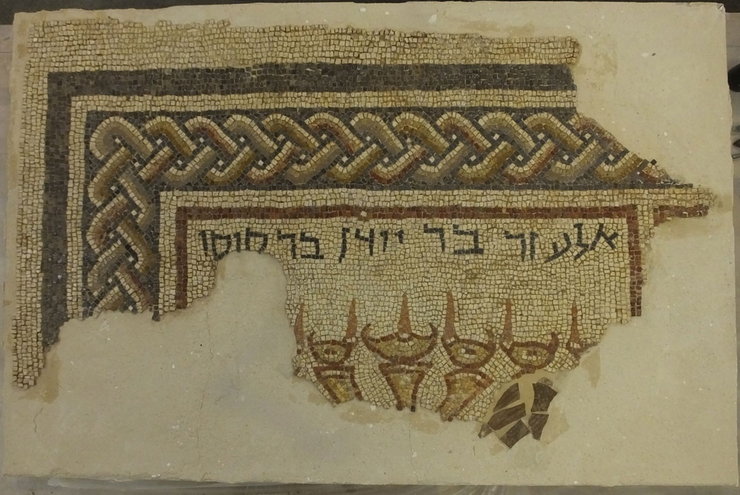 אלעזר בר יודן בר סוסו